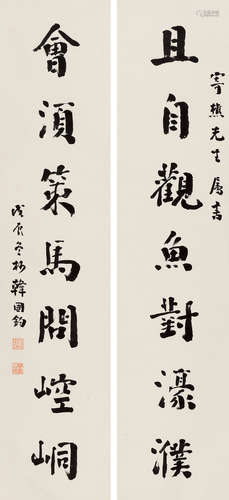 寄樵先生属書
且自觀魚對濠濮
會須策馬問崆峒
戊辰冬於韓國鈞